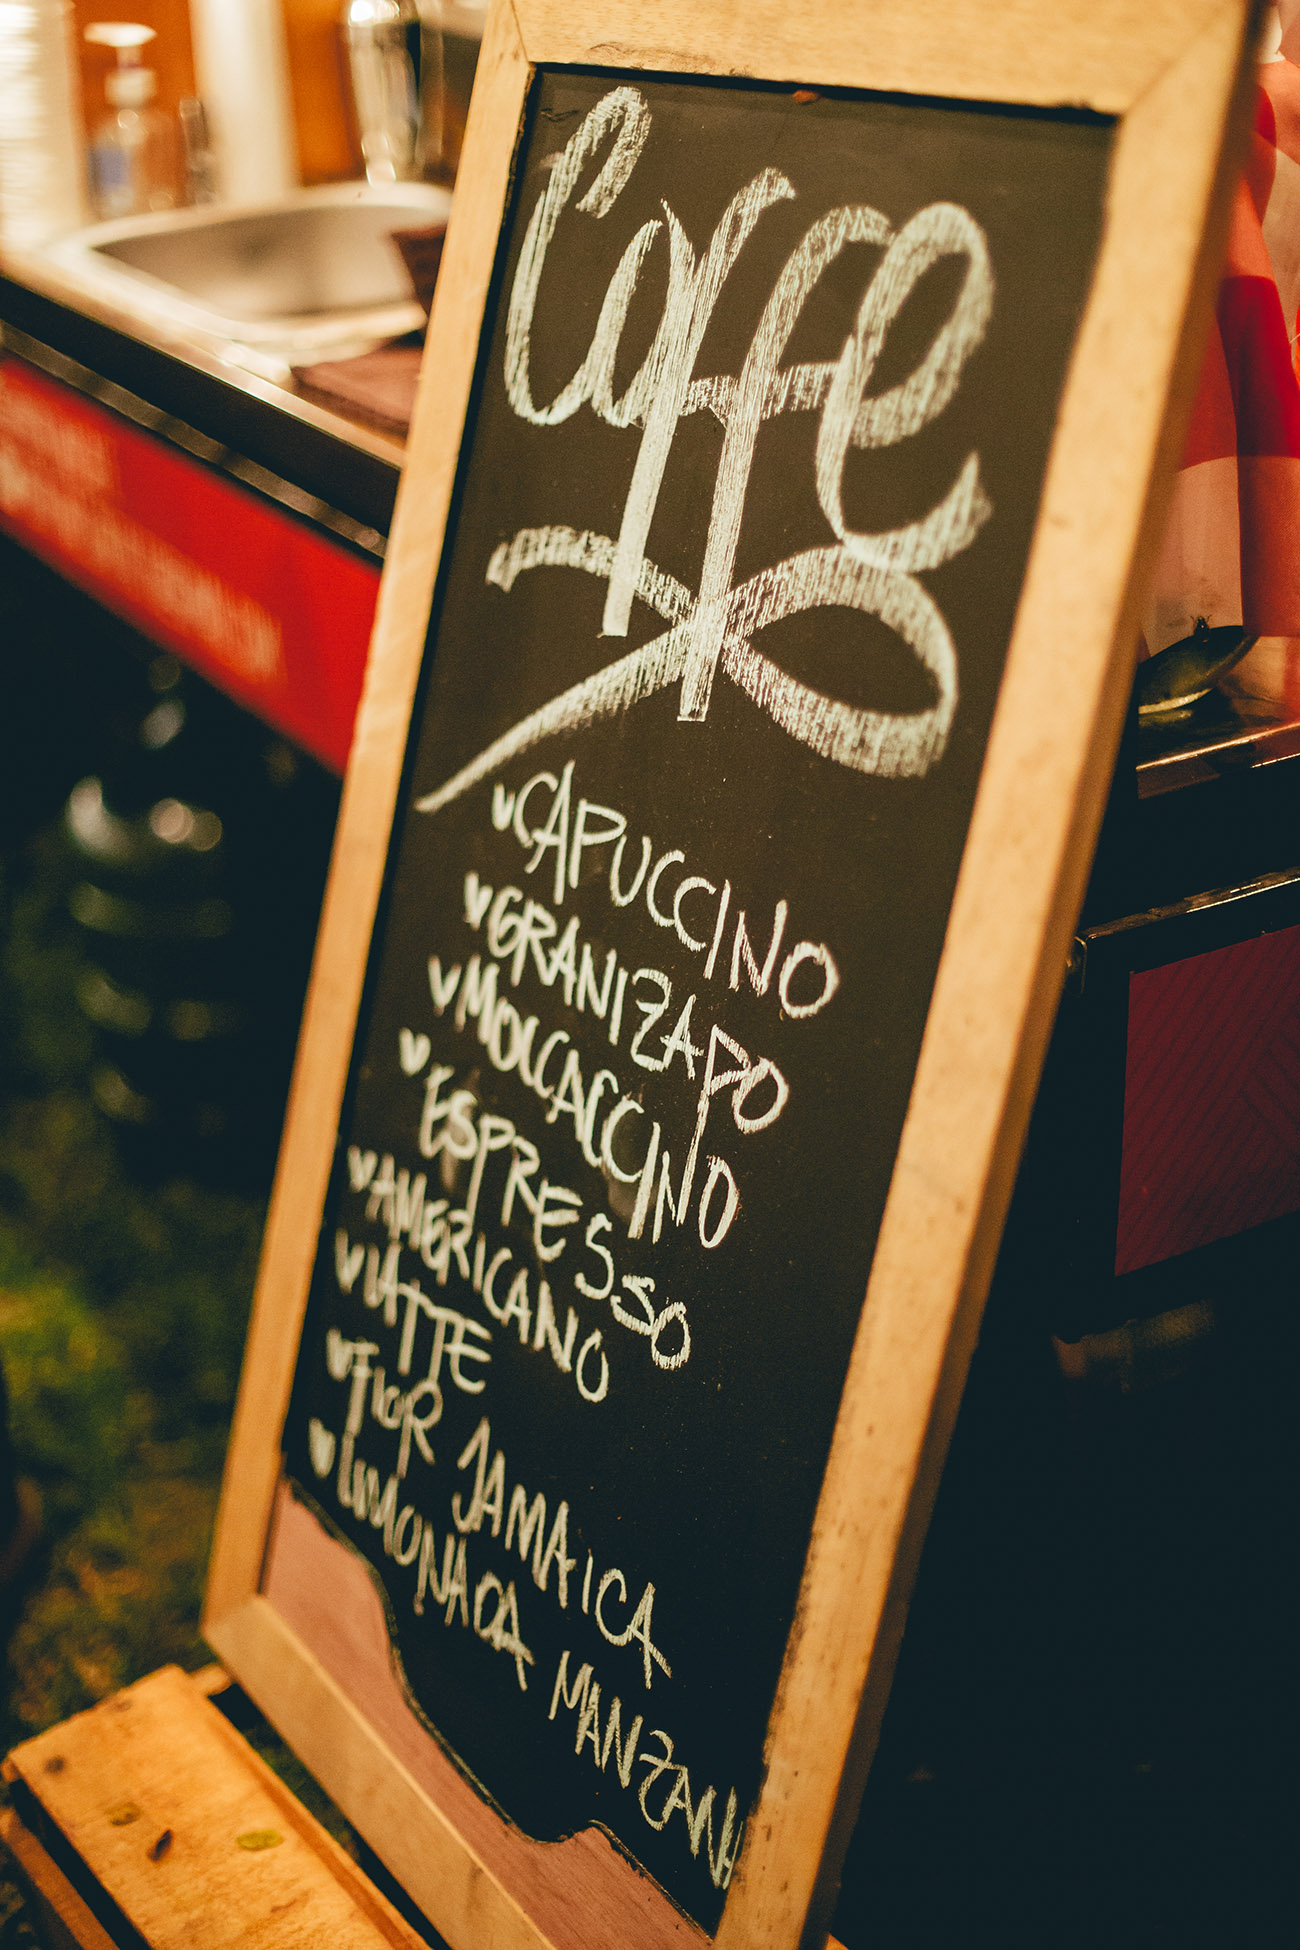 Coffe
CAPUCCINO
GRANIZADO
MOCCACCINO
ESPRESSO
AMERICANO
LATTE
FLOR JAMAICA
LIMONADA MANZANA